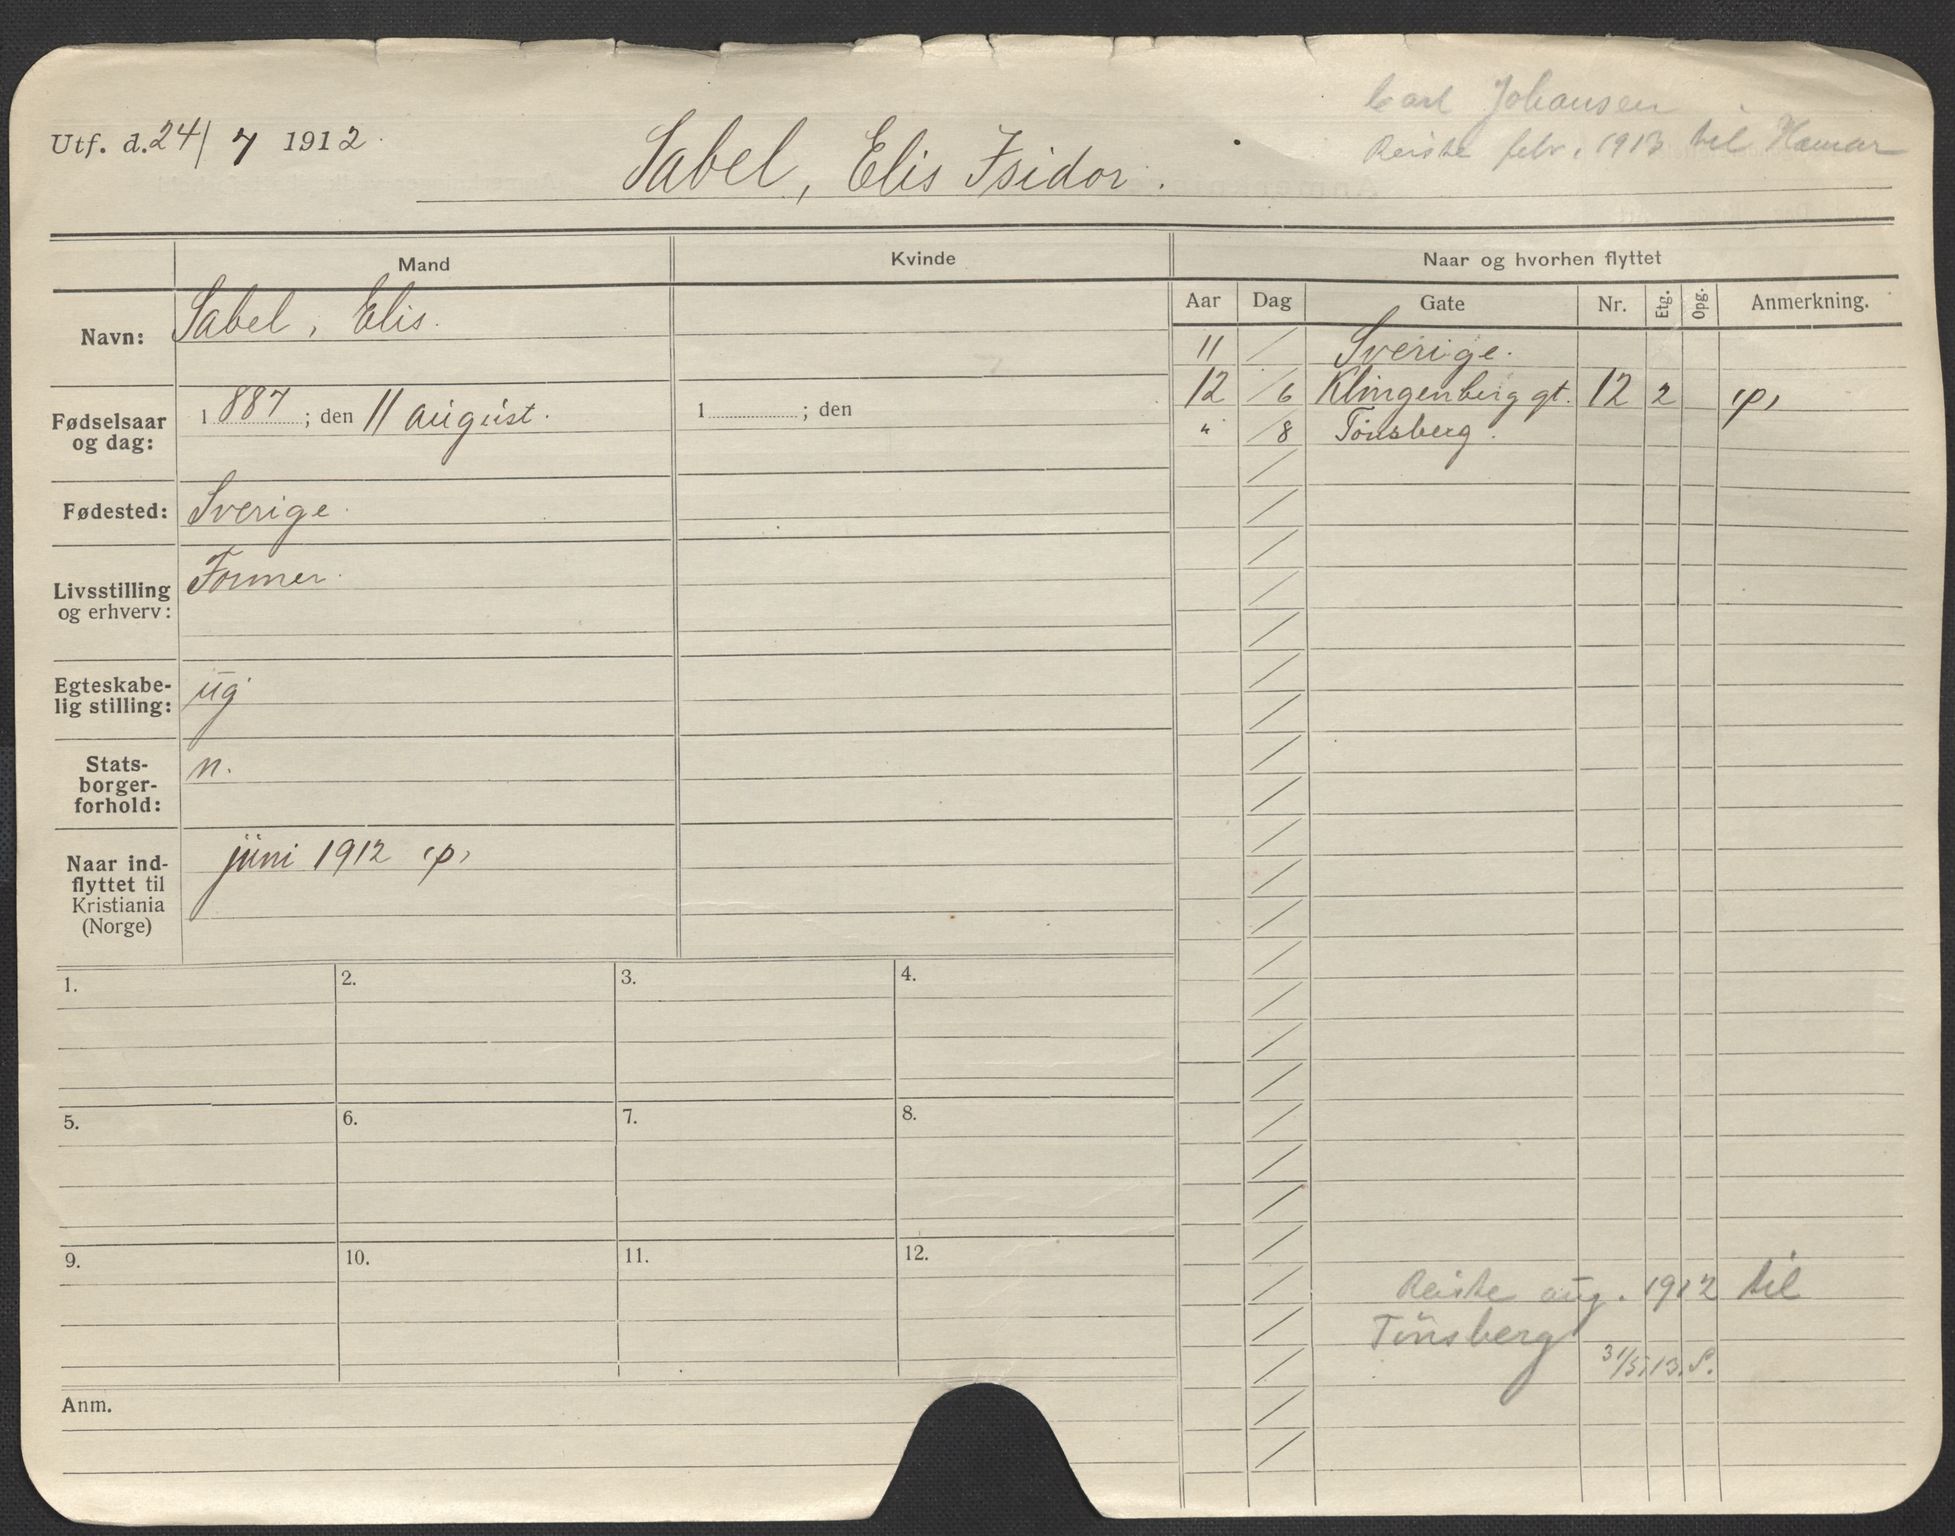 Carl Johansen
Utf. d. 24/7 1912
Reiste febr. 1913 til Hamar
Sabel, Elis Isidor.
Mand
Kvinde
Naar og hvorhen flyttet
Aar Dag Gate Nr. Etg. Opg. Anmerkning.
Navn: Sabel, Elis.
11 / Sverige.
12 /6 Klingenberg gt. 12 2 (p)
" /8 Tønsberg.
Fødselsaar og dag: 1887; den 11 august.
1 ; den
Fødested: Sverige.
Livsstilling og erhverv: Former.
Egteskabe-
lig stilling: ug
Stats-
borger-
forhold: n.
Naar ind-
flyttet til
Kristiania
(Norge)
juni 1912 (p)
1. 2. 3. 4.
5. 6. 7. 8.
9. 10. 11. 12.
Reiste aug. 1912 til
Tønsberg
31/5.13. S.
Anm.